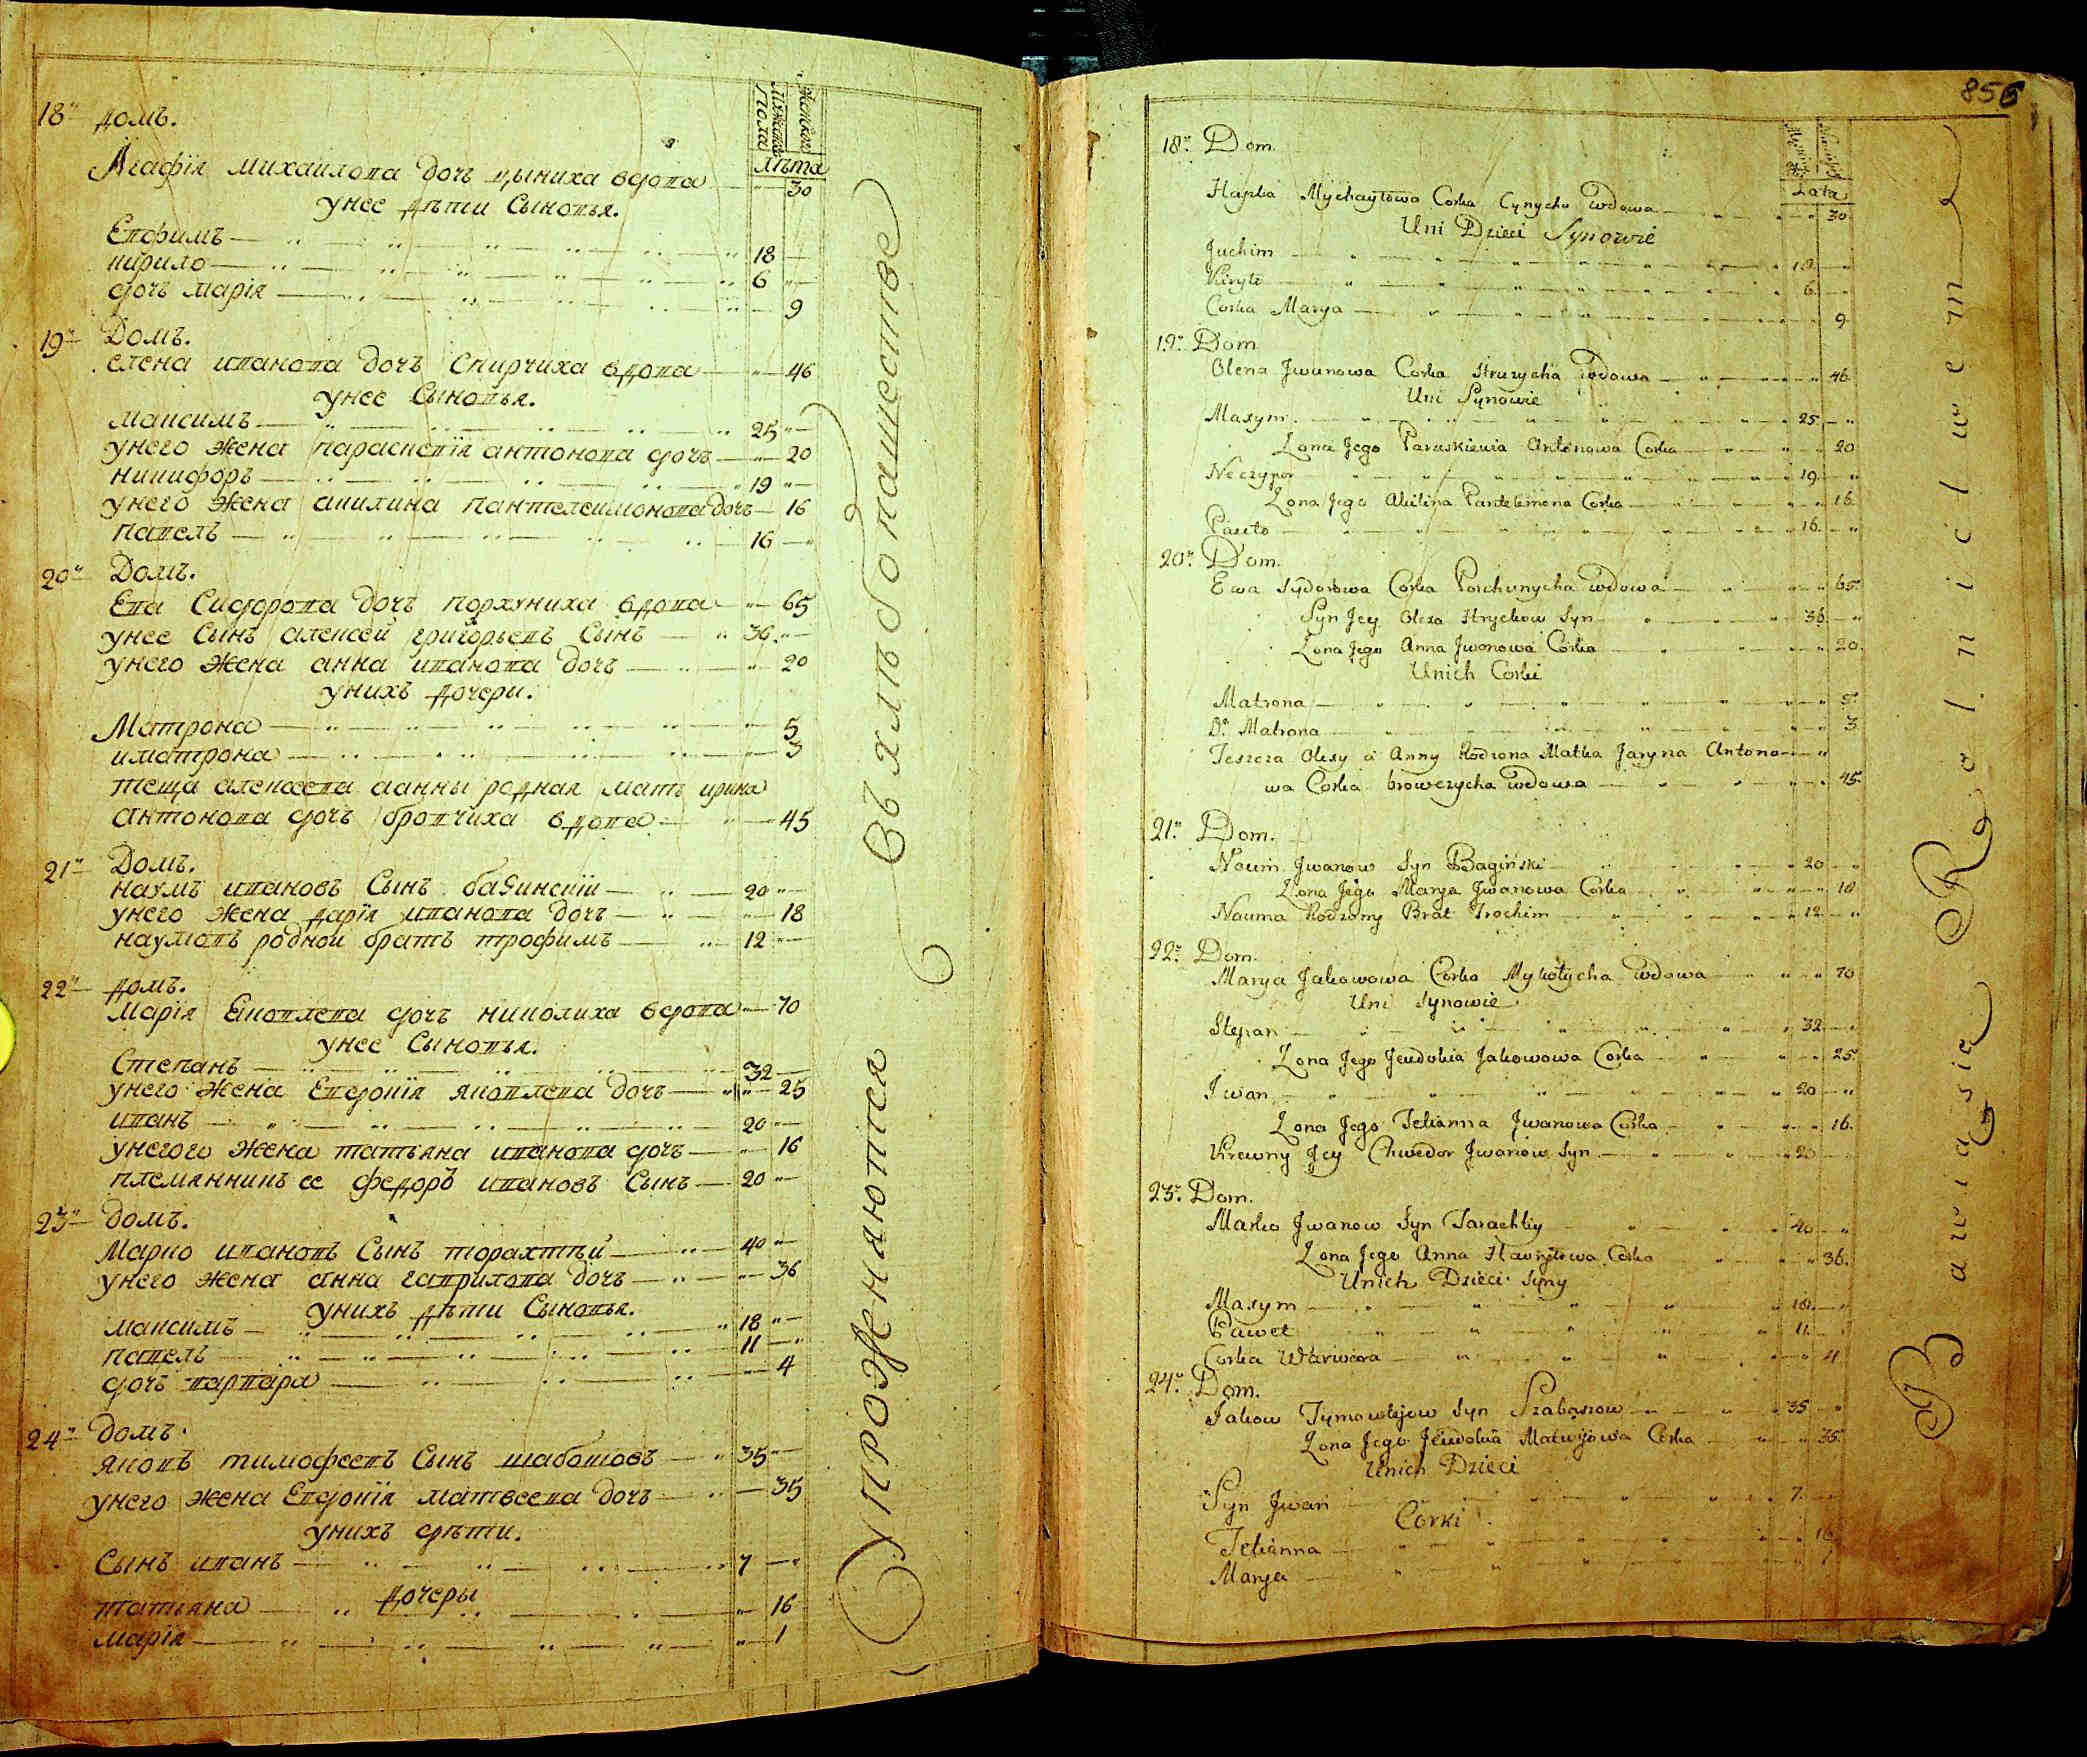 18" домъ.
Мужеска Пола
Женскаго
лѣта
Агафія михаилова дочъ цыниха вдова 30
унее дѣти Сыновья.
Ефимъ 18
кирило 6
дочъ марія 9
19" Домъ.
елена иванова дочъ Спирчиха вдова 46
унее Сыновья.
максимъ 25
унего жена параскевія антонова дочъ 20
никифоръ 19
унего жена акилина пантелеимонова дочъ 16
павелъ 16
20" Домъ.
Ева Сидорова дочъ порхуниха вдова 65
унее Сынъ алексей григорьевъ Сынъ 36
унего жена анна иванова дочъ 20
унихъ дочери.
Матрона 5
иматрона 3
теща алексева ианны родная мать ирина
антонова дочъ бровчиха вдова 45
21" Домъ.
наумъ ивановъ Сынъ багинскiи 20
унего жена дарія иванова дочъ 18
наумовъ родной братъ трофимъ 12
22" домъ.
Марія Яковлева дочъ николиха вдова 70
унее Сыновья.
Степанъ 32
унего жена Евдокія яковлева дочъ 25
иванъ 20
унегого жена татьяна иванова дочъ 16
племянникъ ее федоръ ивановъ Сынъ 20
23" домъ.
Марко ивановъ Сынъ торахтѣй 40
унего жена анна гаврилова дочъ 36
унихъ дѣти Сыновья.
максимъ 18
павелъ 11
дочъ варвара 4
24" домъ.
яковъ тимофеевъ Сынъ шабошовъ 35
унего жена Евдокія матвеева дочъ 35
унихъ дѣти.
Сынъ иванъ 7
дочеры
татьяна 16
марія 1
Упроженяются въ хлѣбопашестве
856
18" Dom.
Lata
Hapka Mychayłowa Corka Cynycha Wdowa 30
Uni Dzieci Synowie
Juchim 18
Kiryło 6
Corka Marya 9
19" Dom
Olena Jwanowa Corka Wdowa 46
Uni Synowie
Maxym 25
Zona Jego Paraskiewia Antonowa Corka 20
Neczypor 19
Zona Jego Akilina Pantelemona Corka 16
Pawło 16
20" Dom.
Ewa Sydorowa Corka Porchunycha Wdowa 65
Syn Jey Olexa Hrychow Syn 36
Zona Jego Anna Jwanowa Corka 20
Unich Corki
Matrona 5
Dª Matrona 3
Teszcza Olexy a Anny Rodzona Matka Jaryna Antono
wa Corka browczycha Wdowa 45
21" Dom.
Noum Jwanow Syn Bagiński 20
Zona Jego Marya Jwanowa Corka 18
Nauma Rodzony Brat Trochim 12
22" Dom.
Marya Jakowowa Corka Mykołycha Wdowa 70
Uni Synowie
Stepan 32
Zona Jego Jewdokia Jakowowa Corka 25
Iwan 20
Zona Jego Tetianna Jwanowa Corka 16
Krewny Jey Chwedor Jwanow Syn 20
23" Dom.
Marko Jwanow Syn Tarachtiy 40
Zona Jego Anna Hawryłowa Corka 36
Unich Dzieci Syny
Maxym 18
Paweł 11
Corka Warwara 4
24" Dom.
Jakow Tymowiejow Syn Szabaszow 35
Zona Jego Jewdokia Matwijowa Corka 35
Unich Dzieci
Syn Jwan 7
Corki
Tetianna 16
Marya 1
Bawią się Rolnictwem